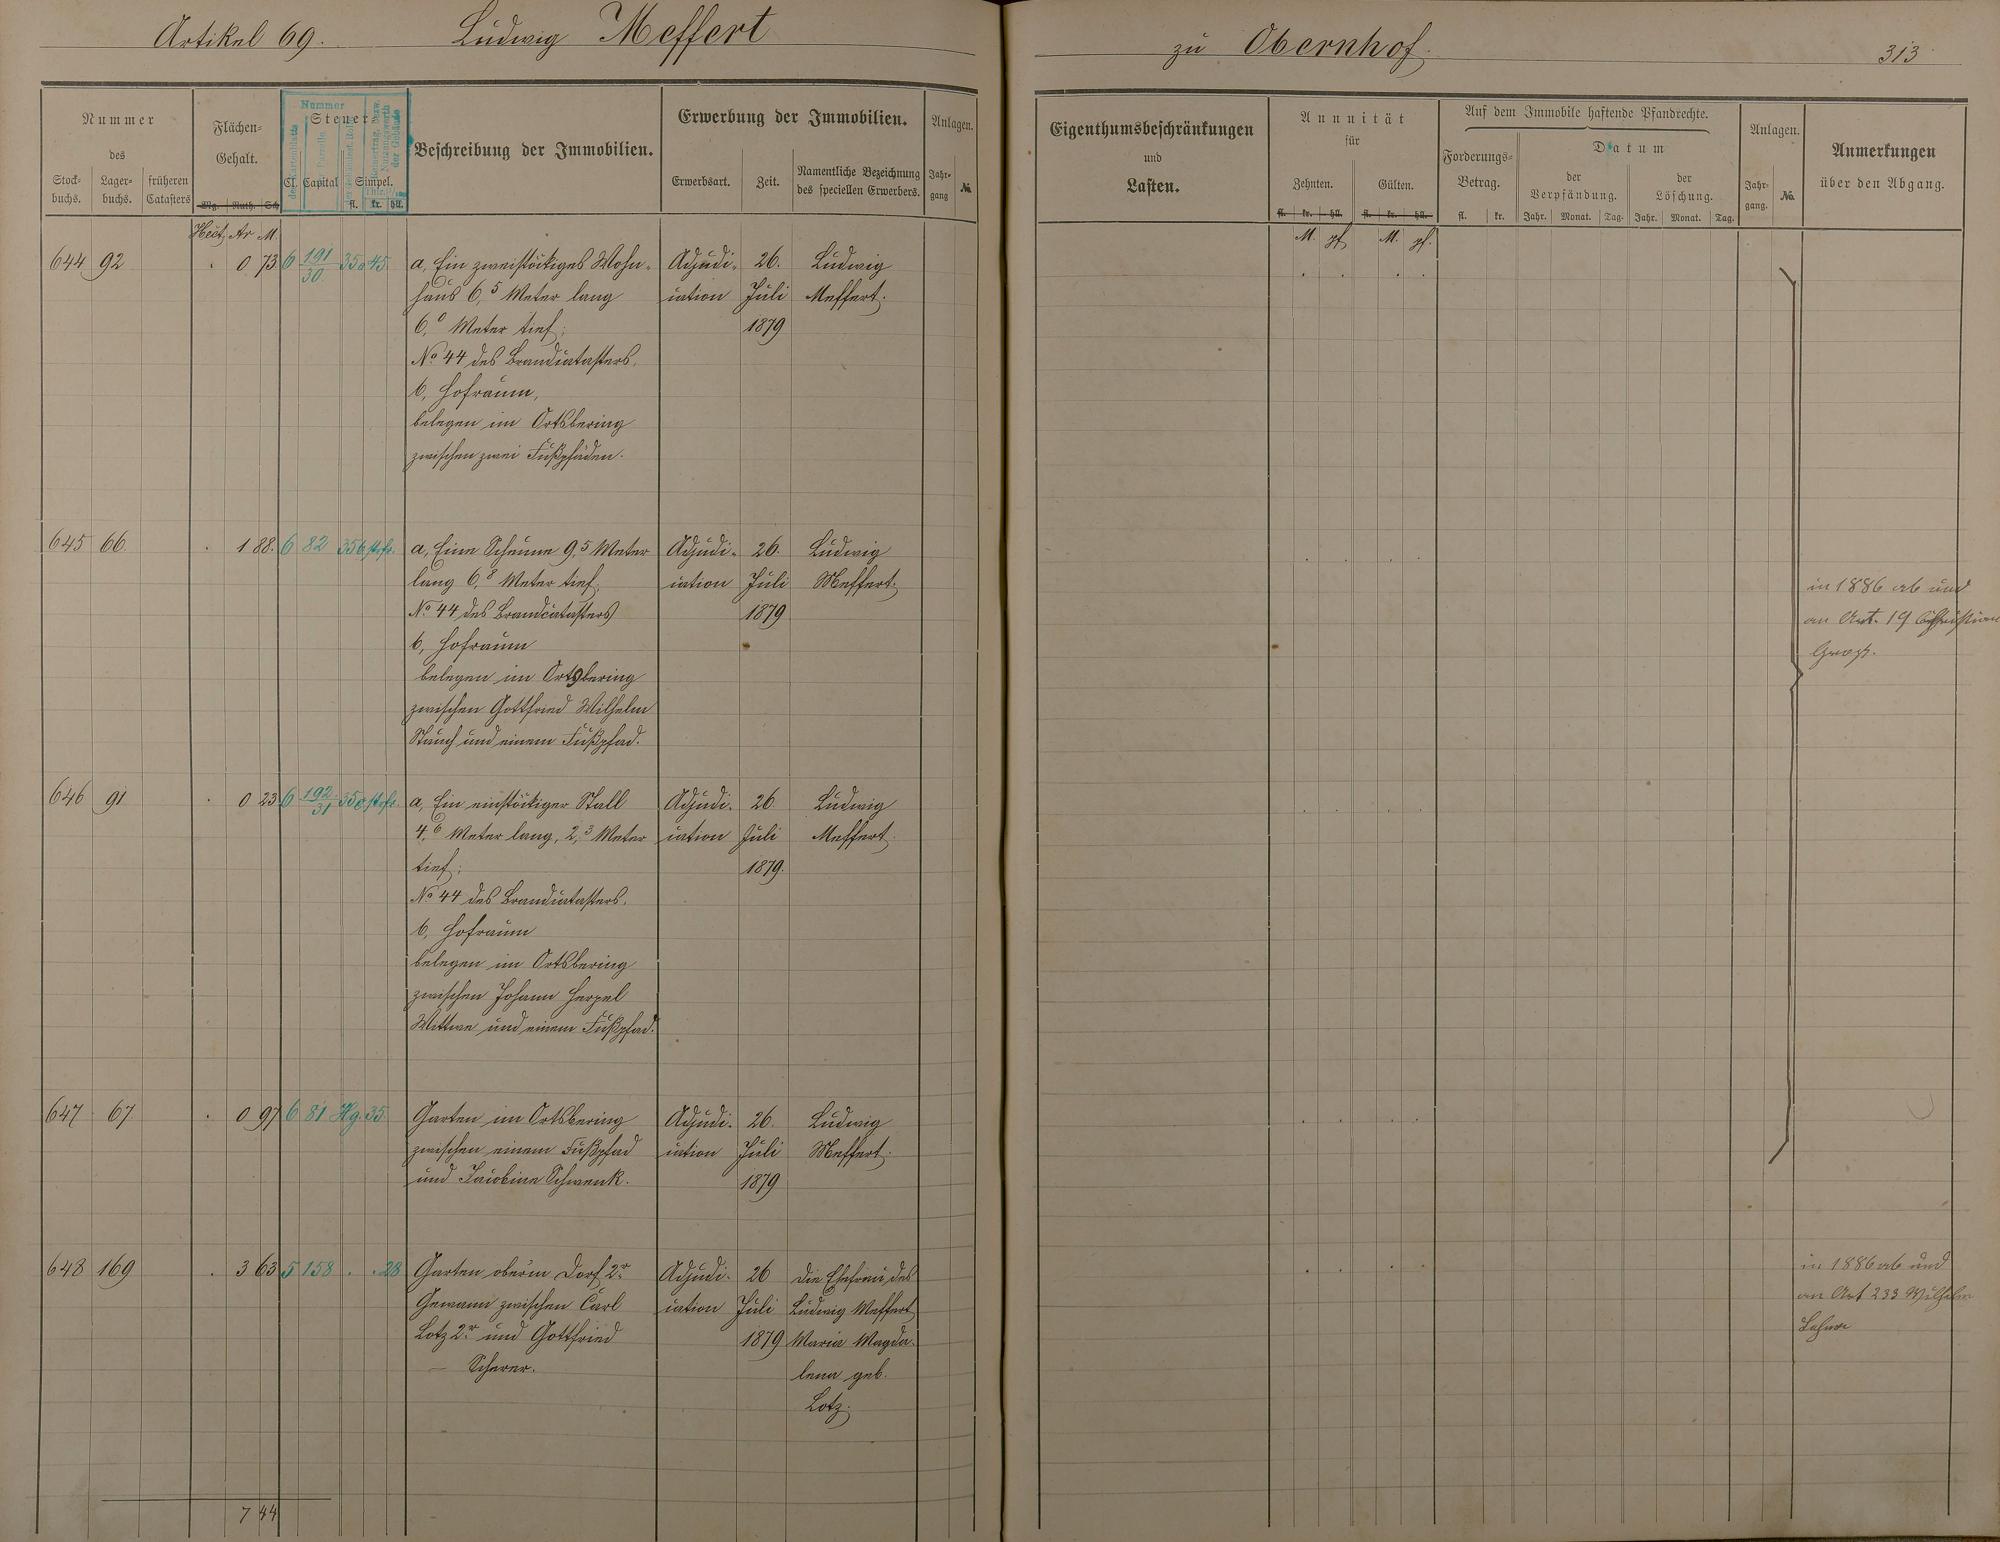 Artikel 69. Ludwig Meffert
zu Obernhof. 313
Nummer
des
Stock-
buchs.
Lager-
buchs.
früheren
Catasters
Flächen-
Gehalt.
Mg. Ruth. Sch
Nummer
Steuer
Cl. Capital Simpel.
fl. kr. hll.
Beschreibung der Immobilien.
Erwerbung der Immobilien.
Erwerbsart. Zeit.
Namentliche Bezeichnung
des speciellen Erwerbers.
Anlagen.
Jahr-
gang
No.
Hect. Ar M.
644 92 . 0 73 6 191/30 35a 45
a, Ein zweistöckiges Wohn-
haus 6,5 Meter lang
6,0 Meter tief;
No 44 des Brandcatasters.
b, Hofraum,
belegen im Ortsbering
zwischen zwei Fußpfäden.
Adjudi-
cation
26.
Juli
1879
Ludwig
Meffert.
645 66 . 1 88. 6 82 35b
a, Eine Scheune 9,5 Meter
lang 6,8 Meter tief,
No 44 des Brandcatasters
b, Hofraum
belegen im Ortsbering
zwischen Gottfried Wilhelm
Stauch und einem Fußpfad.
Adjudi-
cation
26.
Juli
1879
Ludwig
Meffert.
646 91 . 0 23 6 192/31 35c
a, Ein einstöckiger Stall
4,6 Meter lang, 2,3 Meter
tief;
No 44 des Brandcatasters.
b, Hofraum
belegen im Ortsbering
zwischen Johann Herpel
Wittwe und einem Fußpfad.
Adjudi-
cation
26
Juli
1879.
Ludwig
Meffert.
647 67 . 0 97 6 81 Hg. 35
Garten im Ortsbering
zwischen einem Fußpfad
und Jacobine Schwenk.
Adjudi-
cation
26.
Juli
1879
Ludwig
Meffert.
648 169 . 3 63 5 158 . . 28
Garten oberm Dorf 2r
Gewann zwischen Carl
Lotz 2r und Gottfried
Scherer.
Adjudi-
cation
26
Juli
1879
die Ehefrau des
Ludwig Meffert
Maria Magda-
lena geb.
Lotz.
7 44
Eigenthumsbeschränkungen
und
Lasten.
Annuität
für
Zehnten. Gülten.
fl. kr. hll. fl. kr. hll.
M. pf. M. pf.
Auf dem Immobile haftende Pfandrechte.
Forderungs-
Betrag.
fl. kr.
Datum
der
Verpfändung.
Jahr. Monat. Tag.
der
Löschung.
Jahr. Monat. Tag.
Anlagen.
Jahr-
gang.
No.
Anmerkungen
über den Abgang.
in 1886 ab und
an Art. 19 Christian
in 1886 ab und
an Art 233 Wilhelm